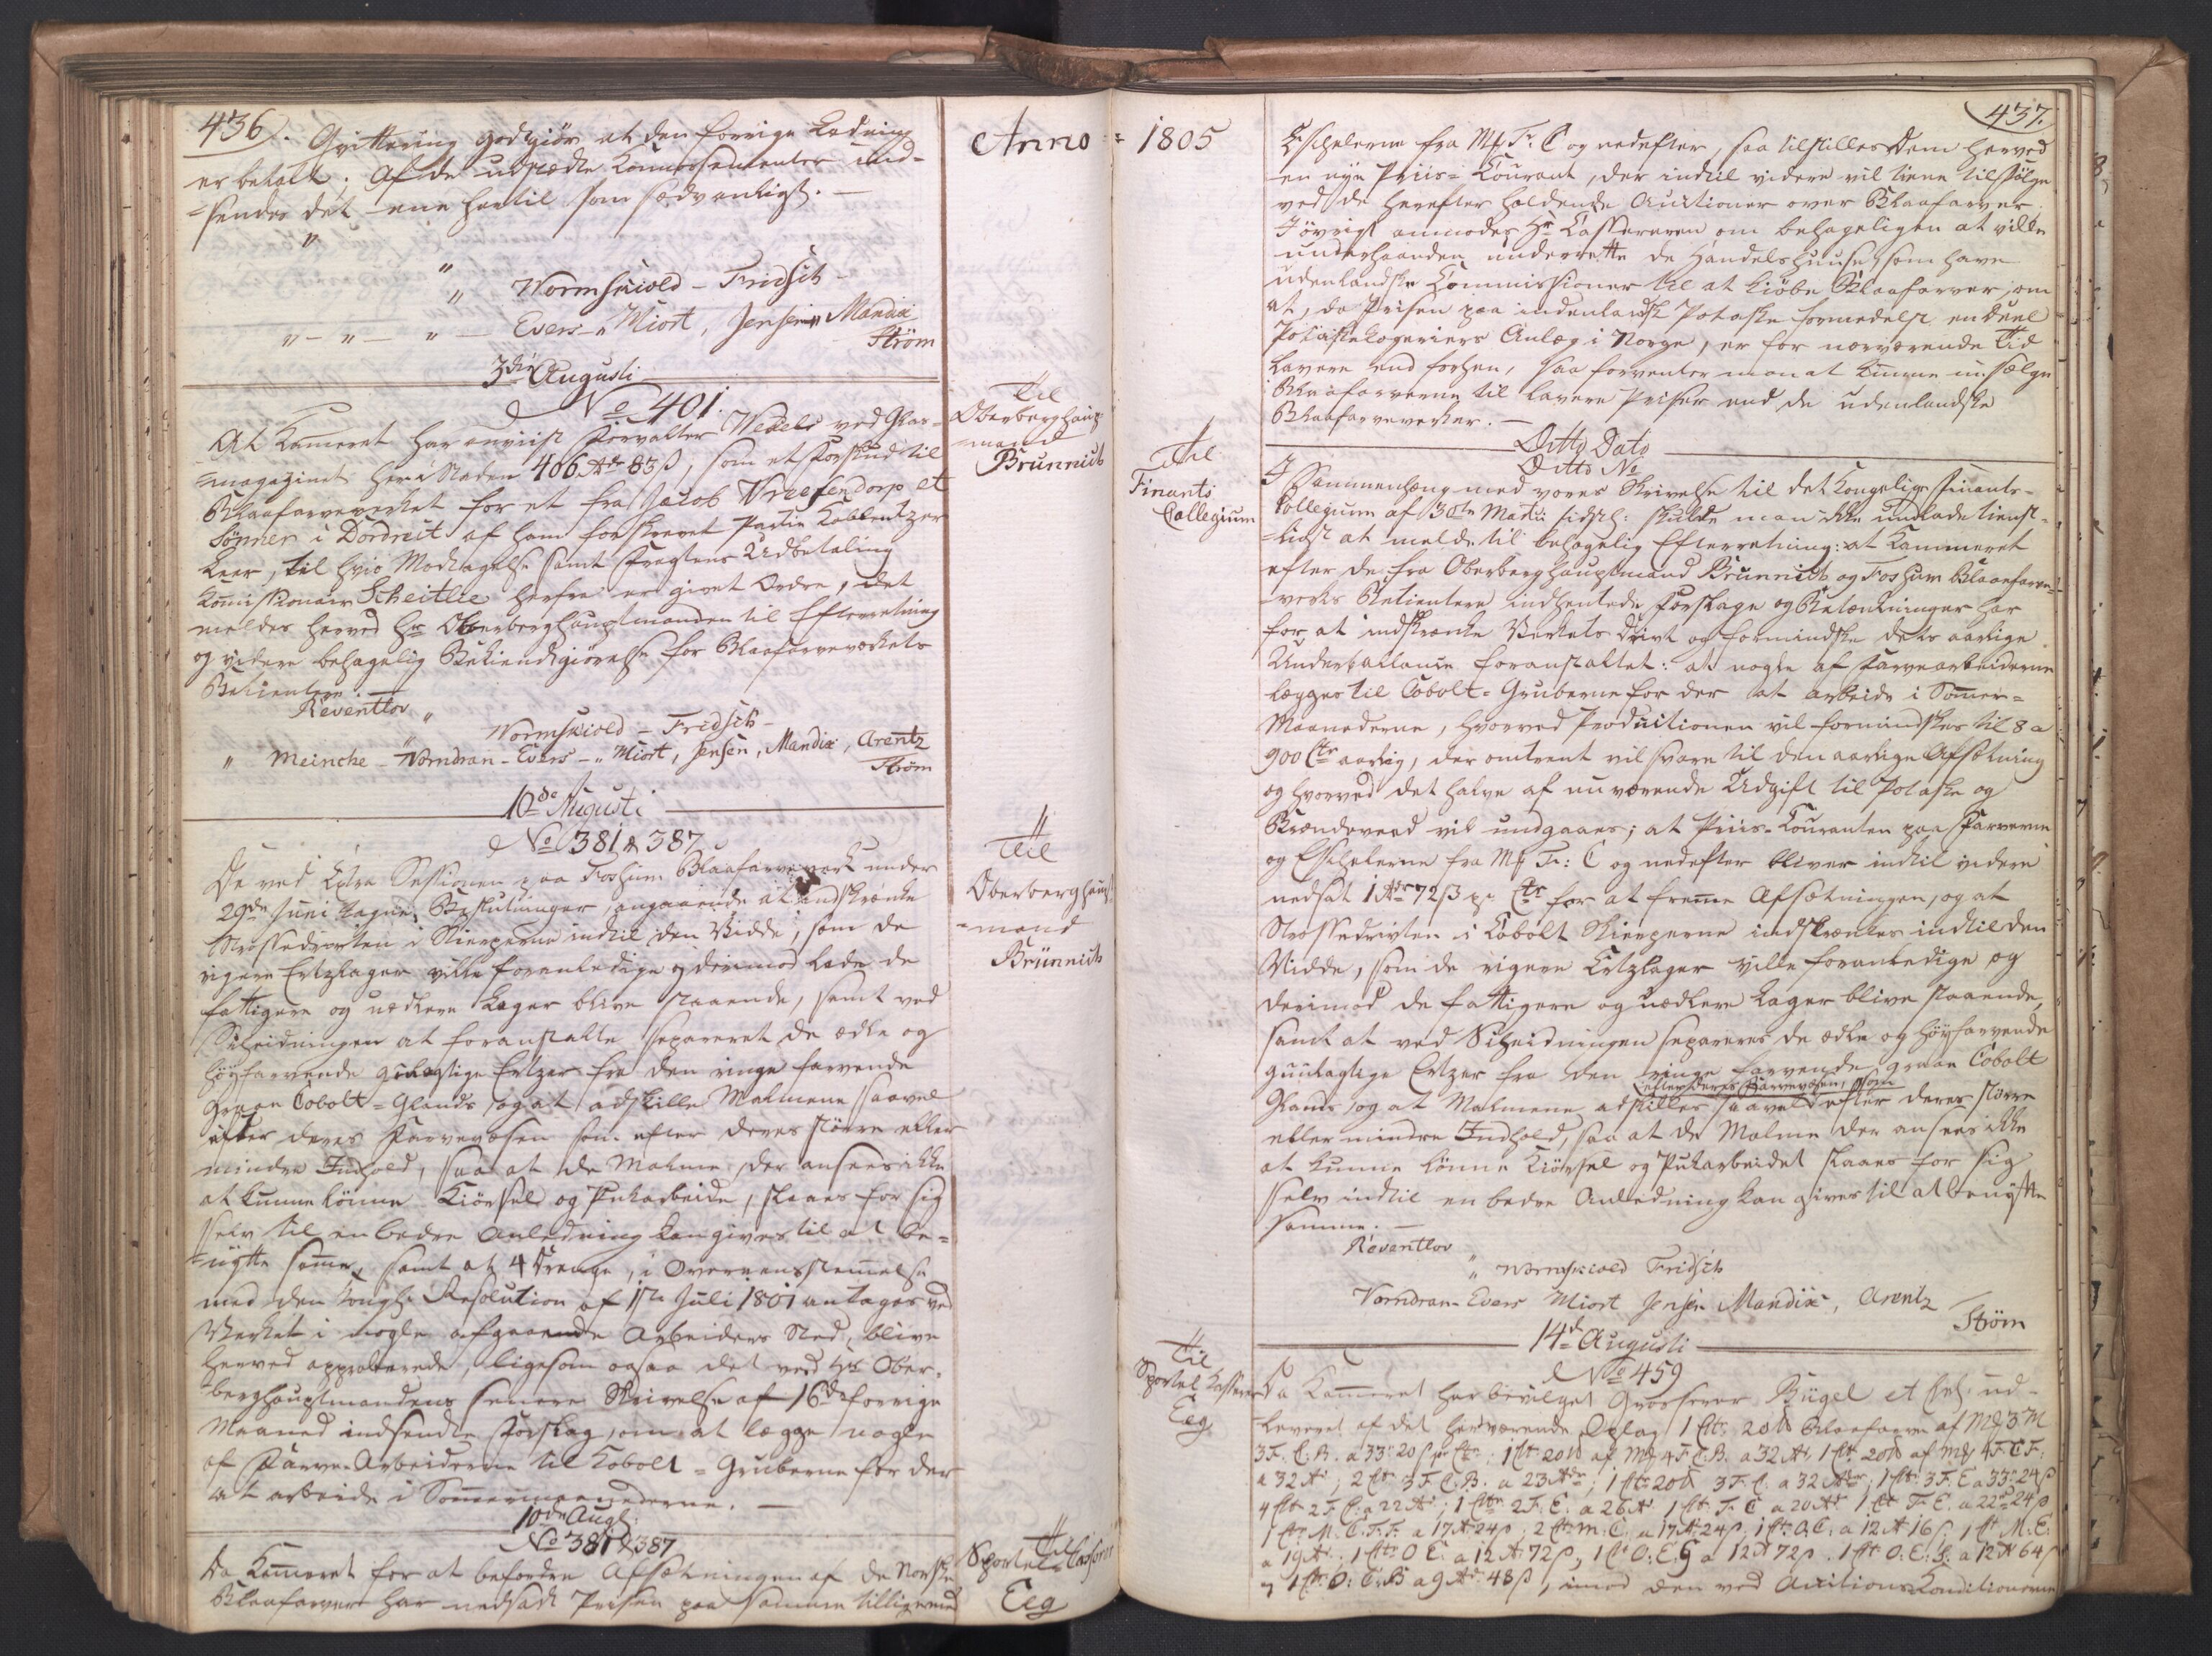 436.
Qvittering godtgiør at den forrige Ladning
er betalt; Af de udstædte Connossementer ind-
=sendes det ene hertil som sædvanligt. —
"
"
" Wormskiold - Fridsch -
" — " — " — Evers - " Miort, Jensen, Mandix
Strøm
Anno =
3die Augusti
No 401.
Til
Oberberghaupt-
=mand
Brünnich
At Kammeret har anviist Forvalter Wedels ved Glas=
=magazinet her i Staden 406 Rdr 83 s, som et Forskud til
Blaafarveværket for et fra Jacob Vreesendorp et
Sønner i Dordrect af ham forskrevet Partie Koblentzer
Leer, til hvis Modtagelse samt Fragtens Udbetaling
Kommissionair Scheitlie herfra er givet Ordre, det
meldes herved Hr Oberberghauptmanden til Efterretning
og videre behagelig Bekiendtgiørelse for Blaafarveværkets
Betientere. —
Reventlov "
" Wormskiold - Fridsch -
" Meincke - Vorndran - Evers - " Miort, Jensen, Mandix, Arentz
Strøm
10de Augusti
No 381 & 387
Til
Oberberghaupt-
=mand
Brünnich
De ved Extra Sessionen paa Foshum Blaafarveværk under
29de Juni tagne Beslutninger angaaende at indskrænke
Strossedrivten i Skierperne indtil den Vidde, som de
rigere Ertzlager ville foranledige og derimod lade de
fattigere og uædlere Lager blive staaende, samt ved
Scheidningen at foranstalte separeret de ædle og
høyfarvende gunstige Ertzer fra den ringe farvende
graae Cobolt=Glands, og at adskille Malmene saavel
efter deres Farvevæsen som efter deres større eller
mindre Indhold, saa at de Malme, der ansees ikke
at kunne lønne Kiørsel og Pukarbeide, slaaes for sig
selv til en bedre Anledning kan gives til at be=
=nytte samme, samt at 4 Drenge, i Overeensstemmelse
med den kongl: Resolution af 1ste Juli 1801 antages ved
Værket i nogle afgaaende Arbeideres Sted, blive
herved approberede, ligesom ogsaa det ved Hr Ober-
berghauptmandens senere Skrivelse af 16de forrige
Maaned indsendte Forslag, om at lægge nogle
af Farve-Arbeiderne til Kobolt=Gruberne for der
at arbeide i Sommermaanederne. —
10de Augl:
No 381 & 387
Til
Sportel-Casserer
Eeg
Da Kammeret for at befordre Afsætningen af de Norske
Blaafarver har nedsadt Prisen paa samme tilligemed
437.
1805
Eschelerne fra Mk Fr: C og nedefter, saa tilstilles Dem herved
en nye Priis=Courant, der indtil videre vil tiene til Følge
ved de herefter holdende Auctioner over Blaafarver.
I øvrigt anmodes Hr Cassereren om behageligen at ville
underhaanden underrette de Handelshuuse som have
udenlandske Commissioner til at kiøbe Blaafarver, om
at, da Prisen paa indenlandsk Potaske formedelst en Deel
Potaskekogeriers Anlæg i Norge, er for nærværende Tid
lavere end forhen, saa forventer man at kunne sælge
Blaafarverne til lavere Priser end de udenlandske
Blaafarveværker. —
Ditto Dato
Ditto No
Til
Finants
Collegium
I Sammenhæng med vores Skrivelse til det Kongelige Finants-
Collegium af 30te Martii sidstl: skulde man ikke undlade tienst-
=ligst at melde til behagelig Efterretning: at Kammeret
efter de fra Oberberghauptmand Brünnich og Foshum Blaafarve-
=værks Betientere indhentede Forslage og Betænkninger har
for at indskrænke Værkets Drivt og formindske dets aarlige
Underballance foranstaltet: at nogle af Farvearbeiderne
lægges til Cobolt=Gruberne for der at arbeide i Sommer=
Maanederne, hvorved Productionen vil formindskes til 8 a
900 Ctr aarlig, der omtrent vil svare til den aarlige Afsætning
og hvorved det halve af nuværende Udgift til Potaske og
Brændeveed vil undgaaes; at Priis=Couranten paa Farverne
og Eschelerne fra Mk Fr: C og nedefter bliver indtil videre
nedsat 1 Rdr 72 s pr Ctr for at fremme Afsætningen, og at
Strossedrivten i Cobolt Skierperne indskrænkes indtil den
Vidde, som de rigere Ertzlager ville foranledige og
derimod de fattigere og uædlere Lager blive staaende,
samt at ved Scheidningen separeres de ædle og høyfarvende
gunstige Ertzer fra den ringe farvende graae Cobolt
efter deres Farvevæsen, som
Glands, og at Malmene adskilles saavel efter deres større
eller mindre Indhold, saa at de Malme der ansees ikke
at kunne lønne Kiørsel og Pukarbeidet slaaes for sig
selv indtil en bedre Anledning kan gives til at benytte
samme. —
Reventlov
" Wormskiold Fridsch
Vorndran - Evers Miort Jensen Mandix, Arentz
Strøm
14de Augusti
No 459
Til
Sportel Casserer
Eeg
Da Kammeret har bevilget Grosserer Bügel et ud-
leveret af det herværende Oplag 1 Ctr 20 lb Blaafarve af Mk 3 M
3 F. C. B. a 33 r 20 s pr Ctr; 1 Ctr 20 lb af Mk 4 F. C. B. a 32 Rd, 1 Ctr 20 lb af Mk 4 F. C F:
a 32 Rd; 2 Ctr 3 F. C. B. a 23 Rdr; 1 Ctr 20 lb 3 F. C. a 32 Rdr; 1 Ctr 3 F. E a 33 r 24 s
4 Ctr 2 F. C. a 22 Rd; 1 Ctr 2 F. E. a 26 Rd 1 Ctr F. C a 20 Rd 1 Ctr F. E. a 22 r 24 s
1 Ctr M. C. F. F. a 17 Rd 24 s; 2 Ctr M. C. a 17 Rd 24 s; 1 Ctr O. C: a 12 Rd 16 s; 1 Ctr M. E:
a 19 Rd. 1 Ctr O E. a 12 Rd 72 s, 1 Ctr O: E. G a 12 Rd 72 s. 1 Ctr O: E: S. a 12 Rd 64 s
og 1 Ctr O: E: B a 9 Rdr 48 s, imod den ved Auctions Conditionerne